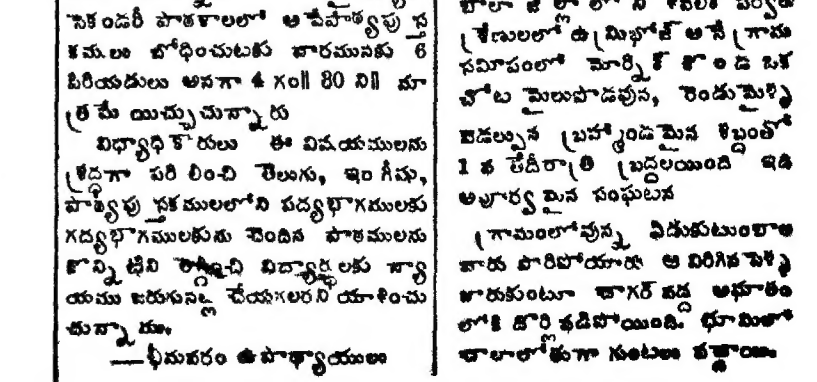 సెకండరీ పాఠశాలలలో ఆ పేపాఠ్యపు స్త
కములు బోధించుటకు వారమునకు 6
పిరియడులు అనగా 4 గం॥ 80 ని॥ మా
త్రమే యిచ్చుచున్నారు
విద్యాధికారులు ఈ విషయములను
శ్రద్ధగా పరిశీలించి తెలుగు, ఇంగ్లీషు,
పాఠ్యపు స్తకములలోని పద్యభాగములకు
గద్యభాగములకును చెందిన పాఠములను
కొన్నిటిని తగ్గించి విద్యార్థులకు న్యా
యము జరుగునట్లు చేయగలరని యాశించు
చున్నాము.
—భీమవరం ఉపాధ్యాయులు
శ్రేణులలో అనే గ్రామ
సమీపంలో కొండ ఒక
చోట మైలుపొడవున, రెండుమైళ్ళ
వెడల్పున బ్రహ్మాండమైన శబ్దంతో
1 వ తేదీరాత్రి బ్రద్దలయింది ఇది
అపూర్వమైన సంఘటన
గ్రామంలోవున్న ఏడుకుటుంబాల
వారు పారిపోయారు ఆ విరిగిన పెళ్ళ
జారుకుంటూ వద్ద అఖాతం
లోకి దొర్లిపడిపోయింది. భూమిలో
చాలాలోతుగా గుంటలు పడ్డాయి.